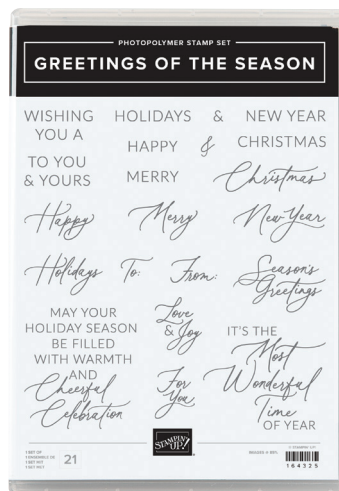 PHOTOPOLYMER STAMP SET
GREETINGS OF THE SEASON
WISHING
YOU A
HOLIDAYS & NEW YEAR
HAPPY & CHRISTMAS
TO YOU
& YOURS
MERRY Christmas
Happy Merry New Year
Holidays To: From: Season's
Greetings
MAY YOUR
HOLIDAY SEASON
BE FILLED
WITH WARMTH
AND
Cheerful
Celebration
Love
& Joy
For
You
IT'S THE
Most
Wonderful
Time
OF YEAR
STAMPIN' UP!
21
164325